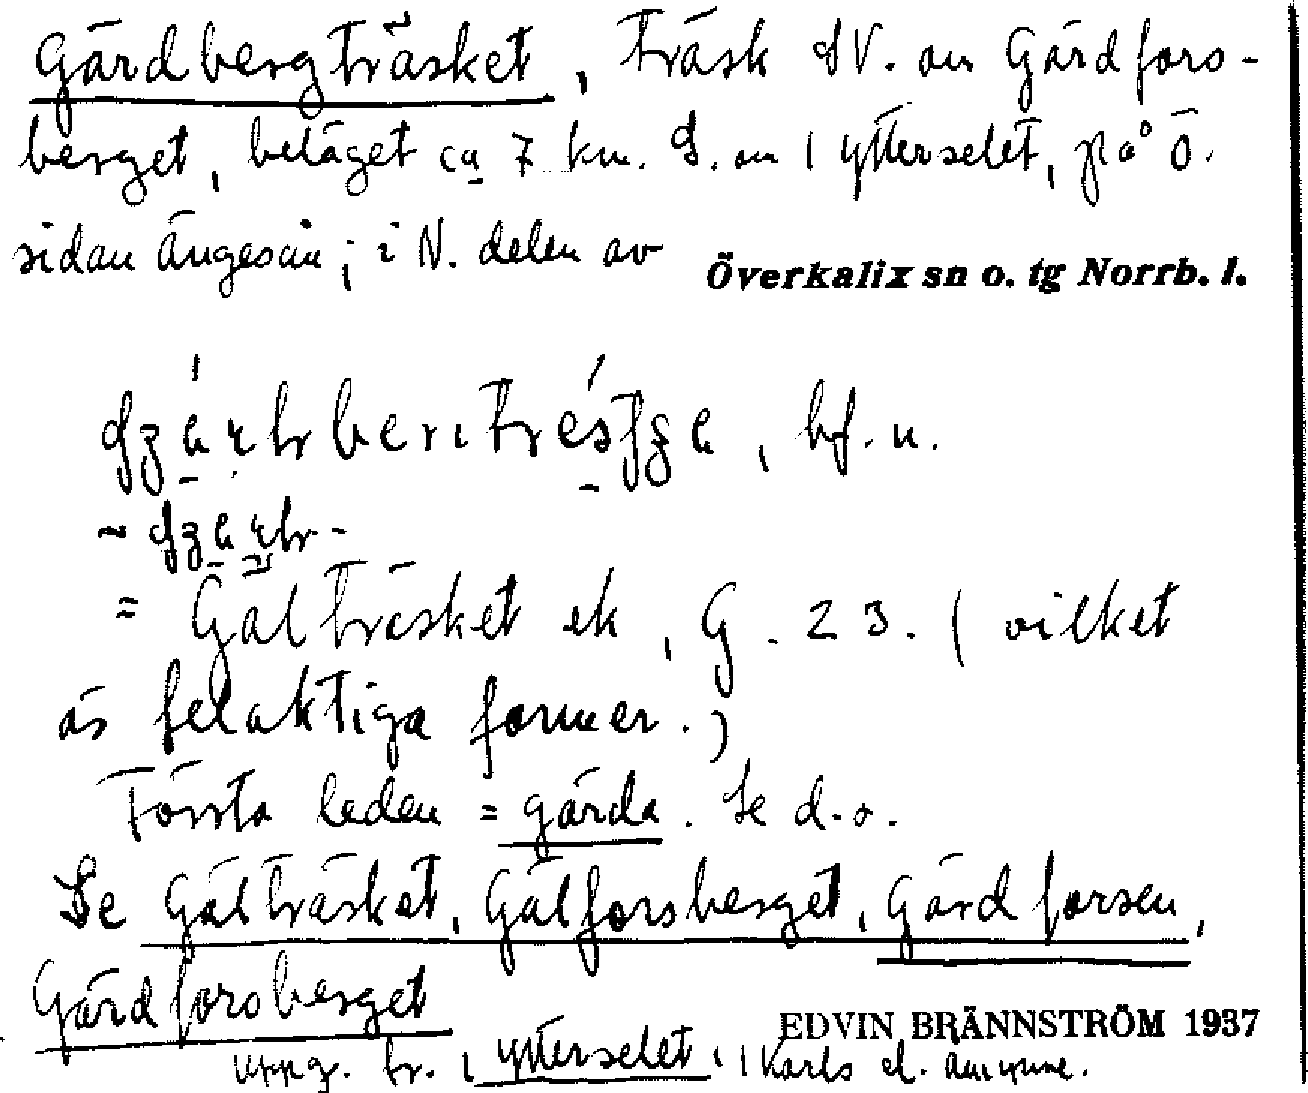 Gärdbergträsket, träsk SV. om Gärdfors-
berget, beläget ca 7 km. S. om Ytterselet, på Ö.
sidan Ängesån; i N. delen av Överkalix sn o. tg Norrb. l.
bf. n.
= Gälträsket ek, G. 23. (vilket
är felaktiga former.)
Första leden = gärda. Se d.o.
Se Gälträsket, Gälforsberget, Gärdforsen,
Gärdforsberget
EDVIN BRÄNNSTRÖM 1937
Uppg. fr. Ytterselet